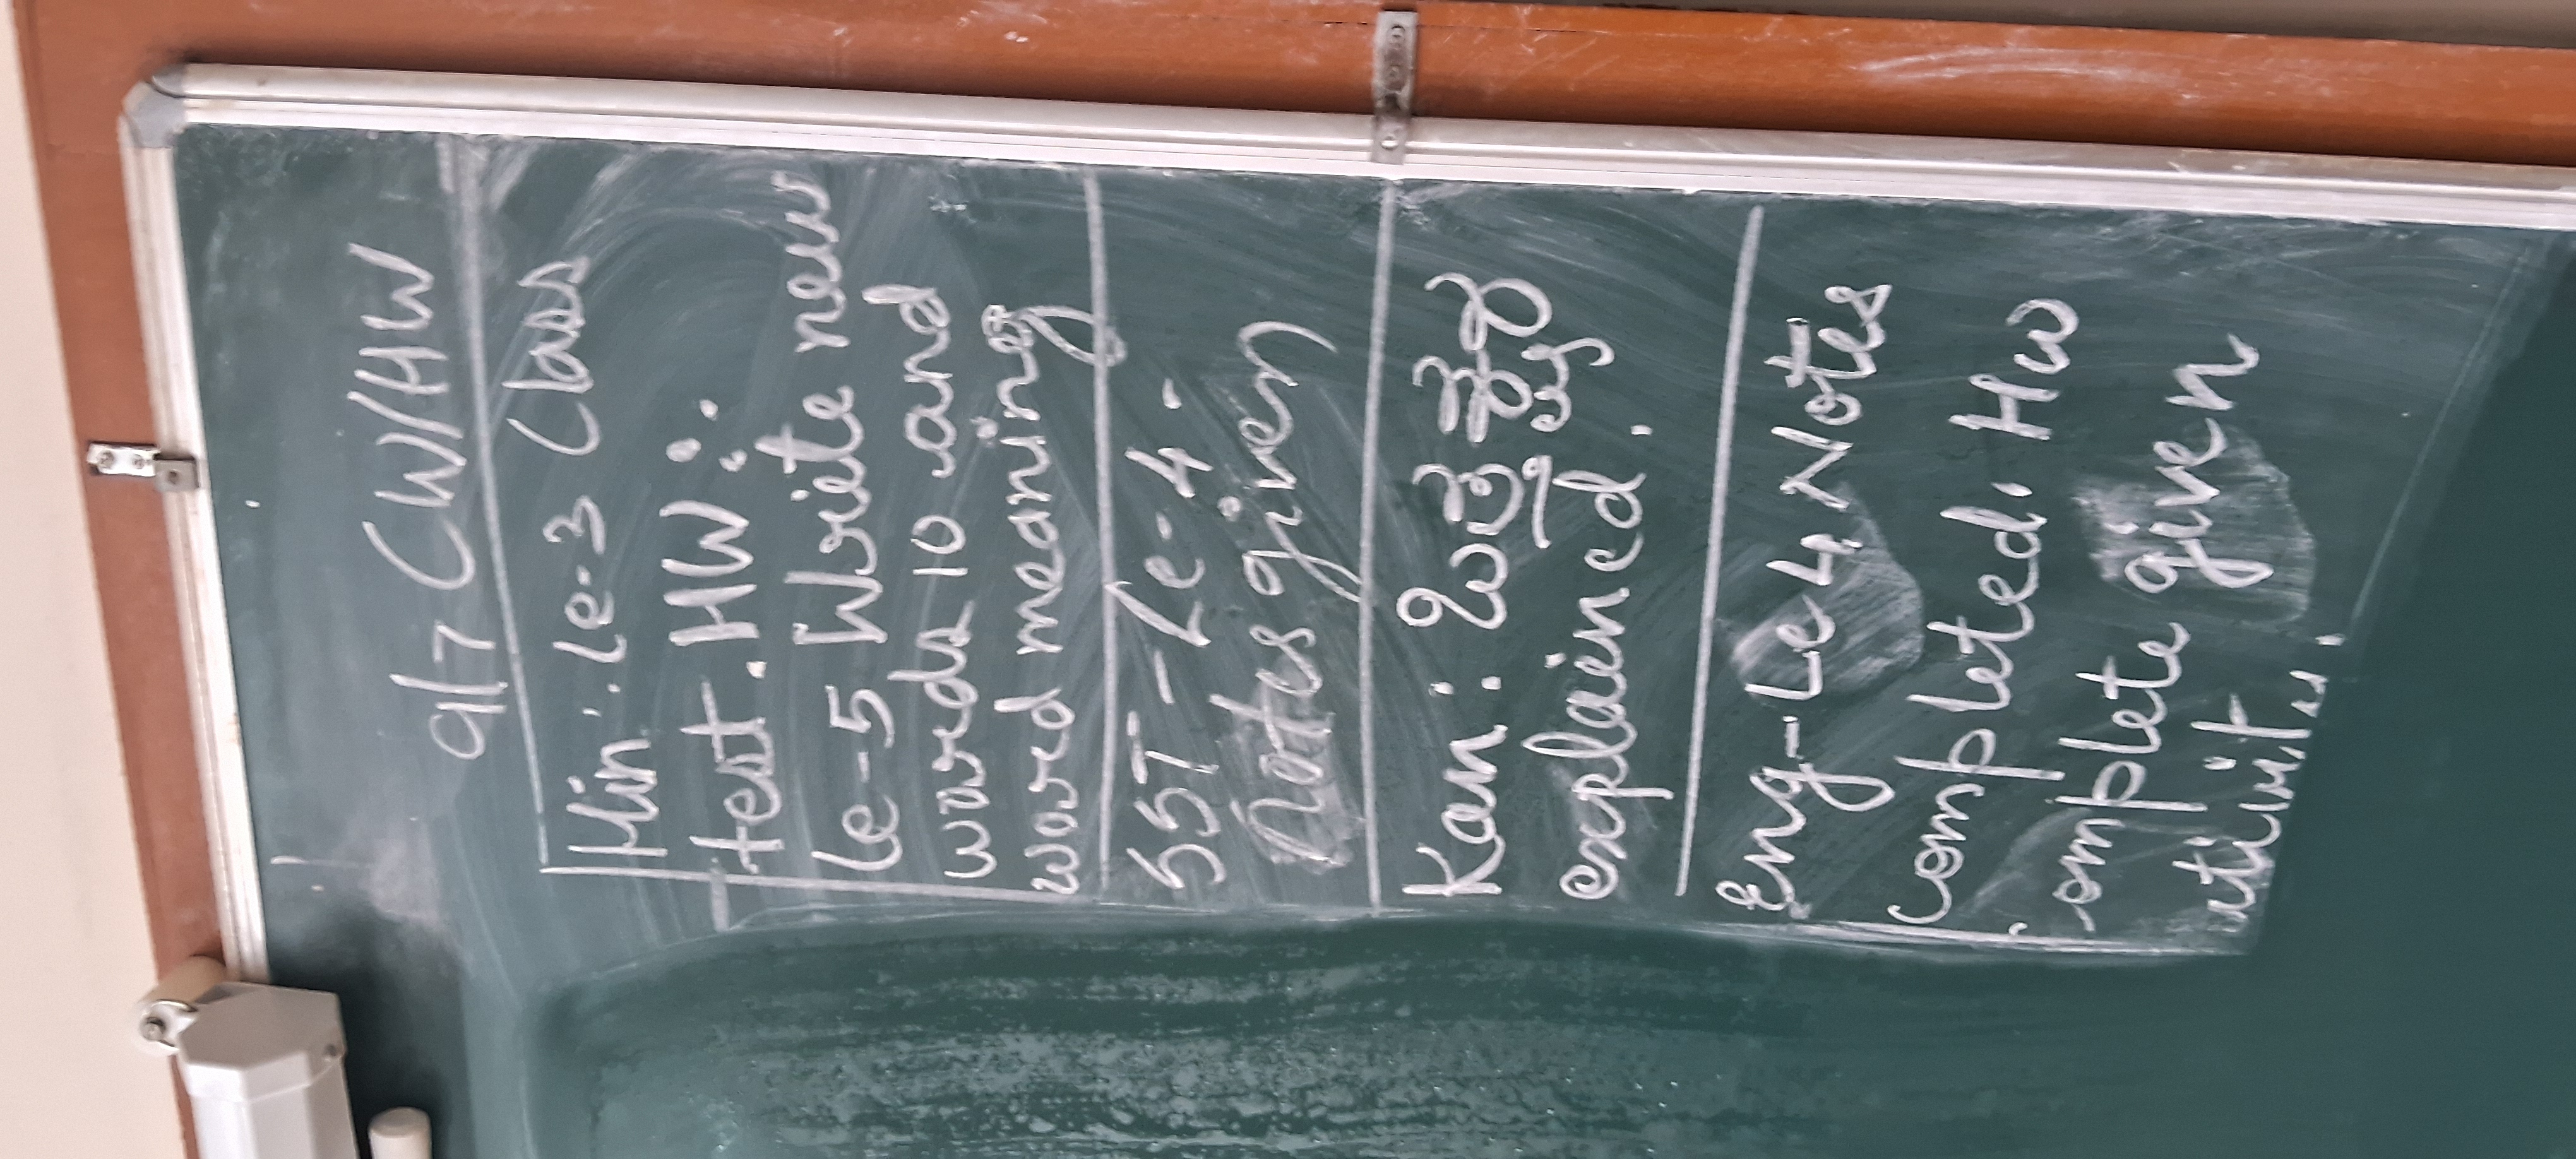 9/7 CW/HW
Hin: Le-3 Class
test. HW:
Le-5 Write new
words 10 and
word meaning
SST - Le-4.
Notes given
Kan:
explained.
Eng-Le 4 Notes
completed. HW
complete given